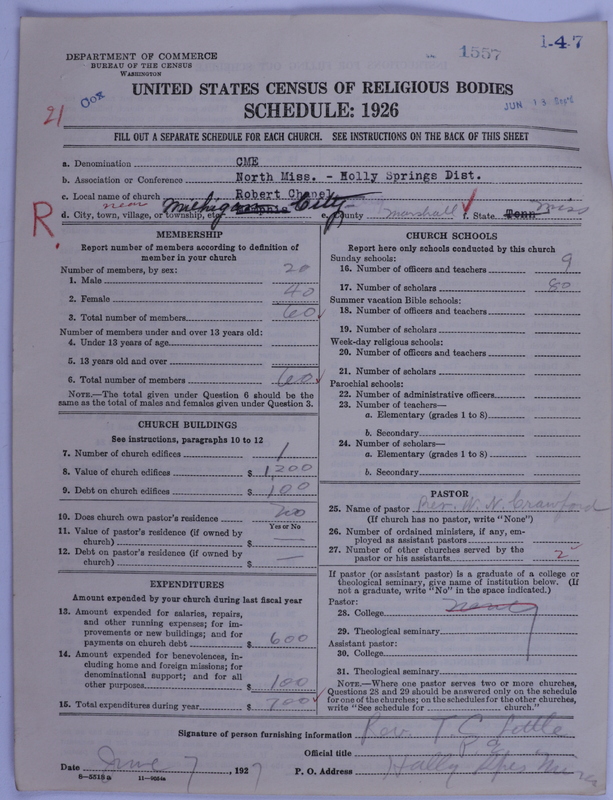 DEPARTMENT OF COMMERCE
BUREAU OF THE CENSUS
WASHINGTON
1557
1-4-7
21
Cox
UNITED STATES CENSUS OF RELIGIOUS BODIES
SCHEDULE: 1926
JUN 13
FILL OUT A SEPARATE SCHEDULE FOR EACH CHURCH. SEE INSTRUCTIONS ON THE BACK OF THIS SHEET
a. Denomination CME
b. Association or Conference North Miss. - Holly Springs Dist.
c. Local name of church Robert Chapel
R.
near
d. City, town, village, or township, etc. Michigan City e. County Marshall f. State Tenn Miss
MEMBERSHIP
Report number of members according to definition of
member in your church
Number of members, by sex:
1. Male 20
2. Female 40
3. Total number of members 60
Number of members under and over 13 years old:
4. Under 13 years of age
5. 13 years old and over
6. Total number of members 60
NOTE.—The total given under Question 6 should be
same as the total of males and females given under Question 3.
CHURCH BUILDINGS
See instructions, paragraphs 10 to 12
7. Number of church edifices 1
8. Value of church edifices $ 1,200
9. Debt on church edifices $ 100
10. Does church own pastor's residence no
Yes or No
11. Value of pastor's residence (if owned by
church) $ —
12. Debt on pastor's residence (if owned by
church) $ —
EXPENDITURES
Amount expended by your church during last fiscal year
13. Amount expended for salaries, repairs,
and other running expenses; for im-
provements or new buildings; and for
payments on church debt $ 600
14. Amount expended for benevolences, in-
cluding home and foreign missions; for
denominational support; and for all
other purposes $ 100
15. Total expenditures during year $ 700
CHURCH SCHOOLS
Report here only schools conducted by this church
Sunday schools:
16. Number of officers and teachers 9
17. Number of scholars 80
Summer vacation Bible schools:
18. Number of officers and teachers
19. Number of scholars
Week-day religious schools:
20. Number of officers and teachers
21. Number of scholars
Parochial schools:
22. Number of administrative officers
23. Number of teachers—
a. Elementary (grades 1 to 8)
b. Secondary
24. Number of scholars—
a. Elementary (grades 1 to 8)
b. Secondary
PASTOR
25. Name of pastor Rev. W. N. Crawford
(If church has no pastor, write "None")
26. Number of ordained ministers, if any, em-
ployed as assistant pastors
27. Number of other churches served by the
pastor or his assistants 2
If pastor (or assistant pastor) is a graduate of a college or
theological seminary, give name of institution below. (If
not a graduate, write "No" in the space indicated.)
Pastor:
28. College
29. Theological seminary
Assistant pastor:
30. College
31. Theological seminary
NOTE.—Where one pastor serves two or more churches,
Questions 28 and 29 should be answered only on the schedule
for one of the churches; on the schedules for the other churches,
write "See schedule for church."
Signature of person furnishing information Rev. T. C. Little
Official title
Date June 7, 1927 P. O. Address Holly Miss
8-5518a 11-9254a